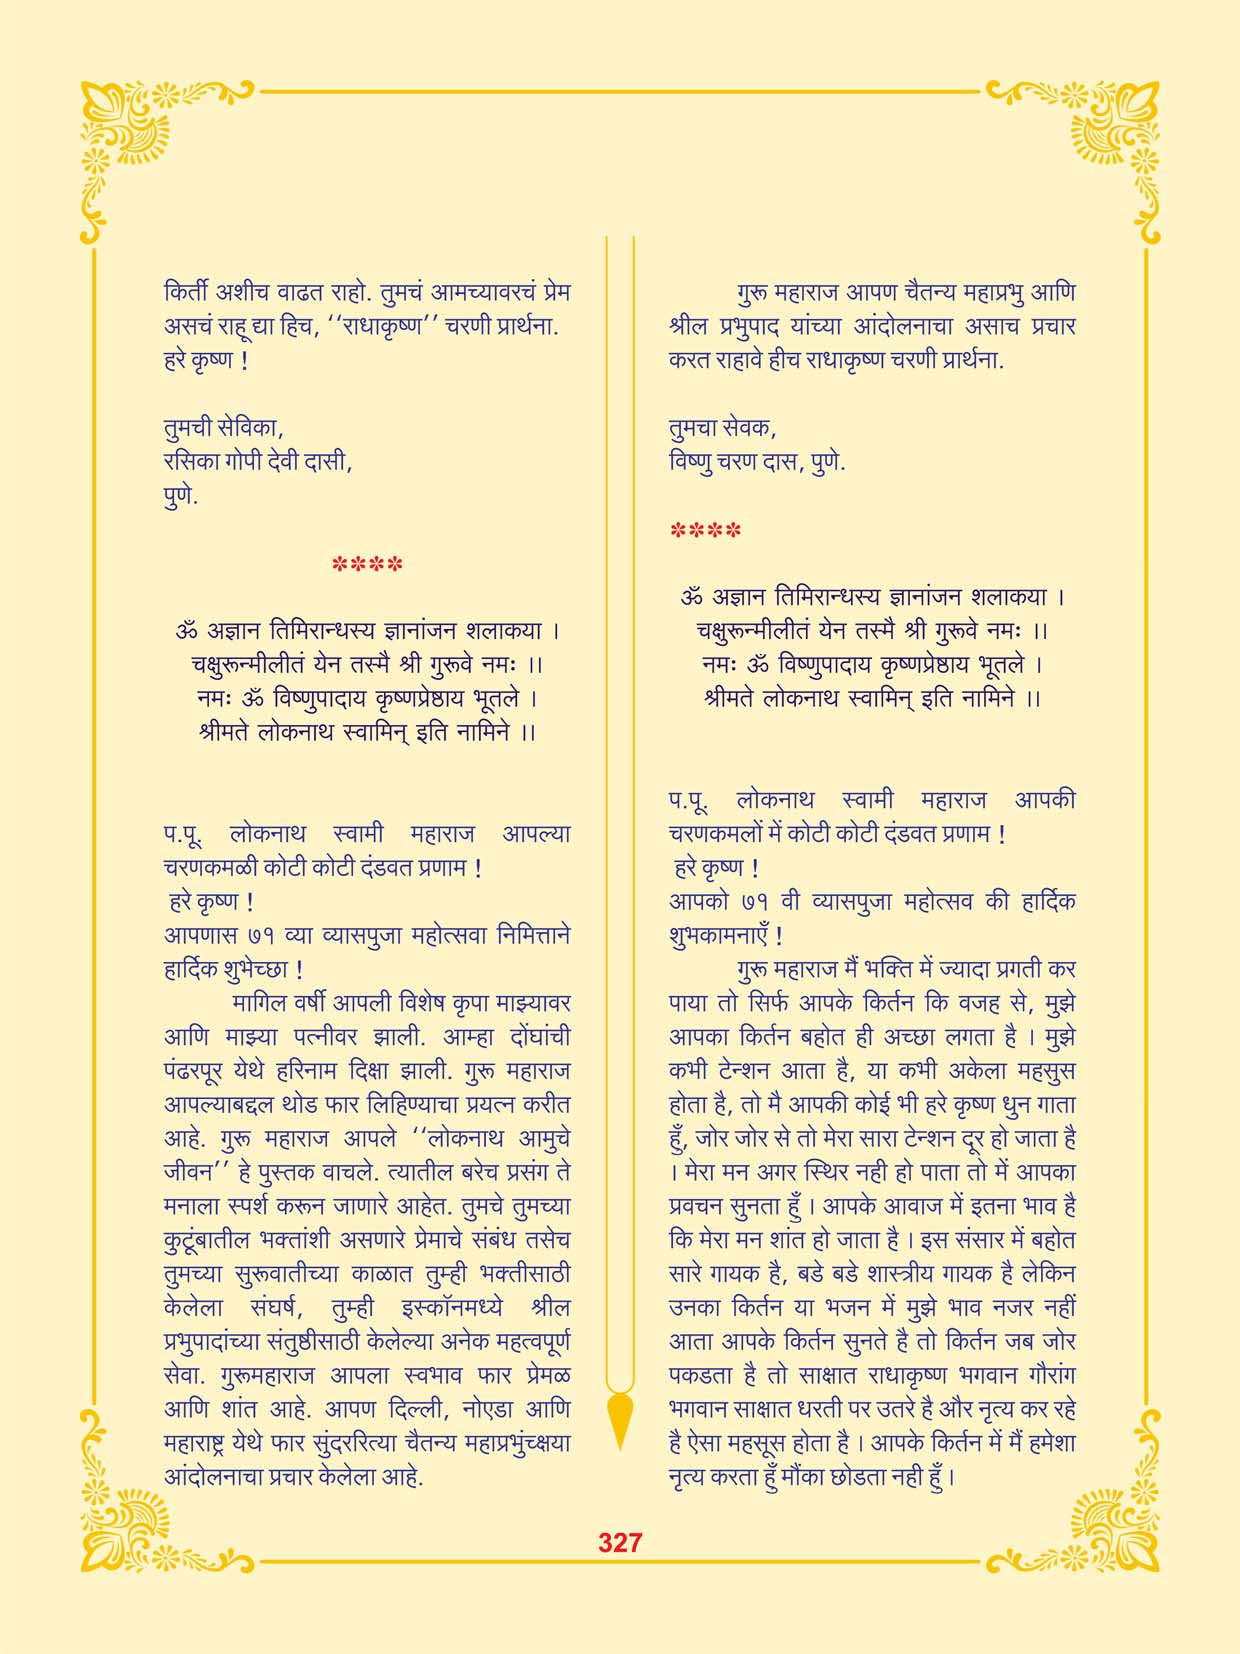 किर्ती अशीच वाढत राहो. तुमचं आमच्यावरचं प्रेम
असचं राहू द्या हिच, ‘‘राधाकृष्ण’’ चरणी प्रार्थना.
हरे कृष्ण !
तुमची सेविका,
रसिका गोपी देवी दासी,
पुणे.
****
ॐ अज्ञान तिमिरान्धस्य ज्ञानांजन शलाकया ।
चक्षुरून्मीलीतं येन तस्मै श्री गुरूवे नमः ।।
नमः ॐ विष्णुपादाय कृष्णप्रेष्ठाय भूतले ।
श्रीमते लोकनाथ स्वामिन् इति नामिने ।।
प.पू. लोकनाथ स्वामी महाराज आपल्या
चरणकमळी कोटी कोटी दंडवत प्रणाम !
हरे कृष्ण !
आपणास ७१ व्या व्यासपुजा महोत्सवा निमित्ताने
हार्दिक शुभेच्छा !
मागिल वर्षी आपली विशेष कृपा माझ्यावर
आणि माझ्या पत्नीवर झाली. आम्हा दोंघांची
पंढरपूर येथे हरिनाम दिक्षा झाली. गुरू महाराज
आपल्याबद्दल थोड फार लिहिण्याचा प्रयत्न करीत
आहे. गुरू महाराज आपले ‘‘लोकनाथ आमुचे
जीवन’’ हे पुस्तक वाचले. त्यातील बरेच प्रसंग ते
मनाला स्पर्श करून जाणारे आहेत. तुमचे तुमच्या
कुटूंबातील भक्तांशी असणारे प्रेमाचे संबंध तसेच
तुमच्या सुरूवातीच्या काळात तुम्ही भक्तीसाठी
केलेला संघर्ष, तुम्ही इस्कॉनमध्ये श्रील
प्रभुपादांच्या संतुष्ठीसाठी केलेल्या अनेक महत्वपूर्ण
सेवा. गुरूमहाराज आपला स्वभाव फार प्रेमळ
आणि शांत आहे. आपण दिल्ली, नोएडा आणि
महाराष्ट्र येथे फार सुंदररित्या चैतन्य महाप्रभुंच्क्षया
आंदोलनाचा प्रचार केलेला आहे.
गुरू महाराज आपण चैतन्य महाप्रभु आणि
श्रील प्रभुपाद यांच्या आंदोलनाचा असाच प्रचार
करत राहावे हीच राधाकृष्ण चरणी प्रार्थना.
तुमचा सेवक,
विष्णु चरण दास, पुणे.
****
ॐ अज्ञान तिमिरान्धस्य ज्ञानांजन शलाकया ।
चक्षुरून्मीलीतं येन तस्मै श्री गुरूवे नमः ।।
नमः ॐ विष्णुपादाय कृष्णप्रेष्ठाय भूतले ।
श्रीमते लोकनाथ स्वामिन् इति नामिने ।।
प.पू. लोकनाथ स्वामी महाराज आपकी
चरणकमलों में कोटी कोटी दंडवत प्रणाम !
हरे कृष्ण !
आपको ७१ वी व्यासपुजा महोत्सव की हार्दिक
शुभकामनाएँ !
गुरू महाराज मैं भक्ति में ज्यादा प्रगती कर
पाया तो सिर्फ आपके किर्तन कि वजह से, मुझे
आपका किर्तन बहोत ही अच्छा लगता है । मुझे
कभी टेन्शन आता है, या कभी अकेला महसुस
होता है, तो मै आपकी कोई भी हरे कृष्ण धुन गाता
हुँ, जोर जोर से तो मेरा सारा टेन्शन दूर हो जाता है
। मेरा मन अगर स्थिर नही हो पाता तो में आपका
प्रवचन सुनता हुँ । आपके आवाज में इतना भाव है
कि मेरा मन शांत हो जाता है । इस संसार में बहोत
सारे गायक है, बडे बडे शास्त्रीय गायक है लेकिन
उनका किर्तन या भजन में मुझे भाव नजर नहीं
आता आपके किर्तन सुनते है तो किर्तन जब जोर
पकडता है तो साक्षात राधाकृष्ण भगवान गौरांग
भगवान साक्षात धरती पर उतरे है और नृत्य कर रहे
है ऐसा महसूस होता है । आपके किर्तन में मैं हमेशा
नृत्य करता हुँ मौंका छोडता नही हुँ ।
327